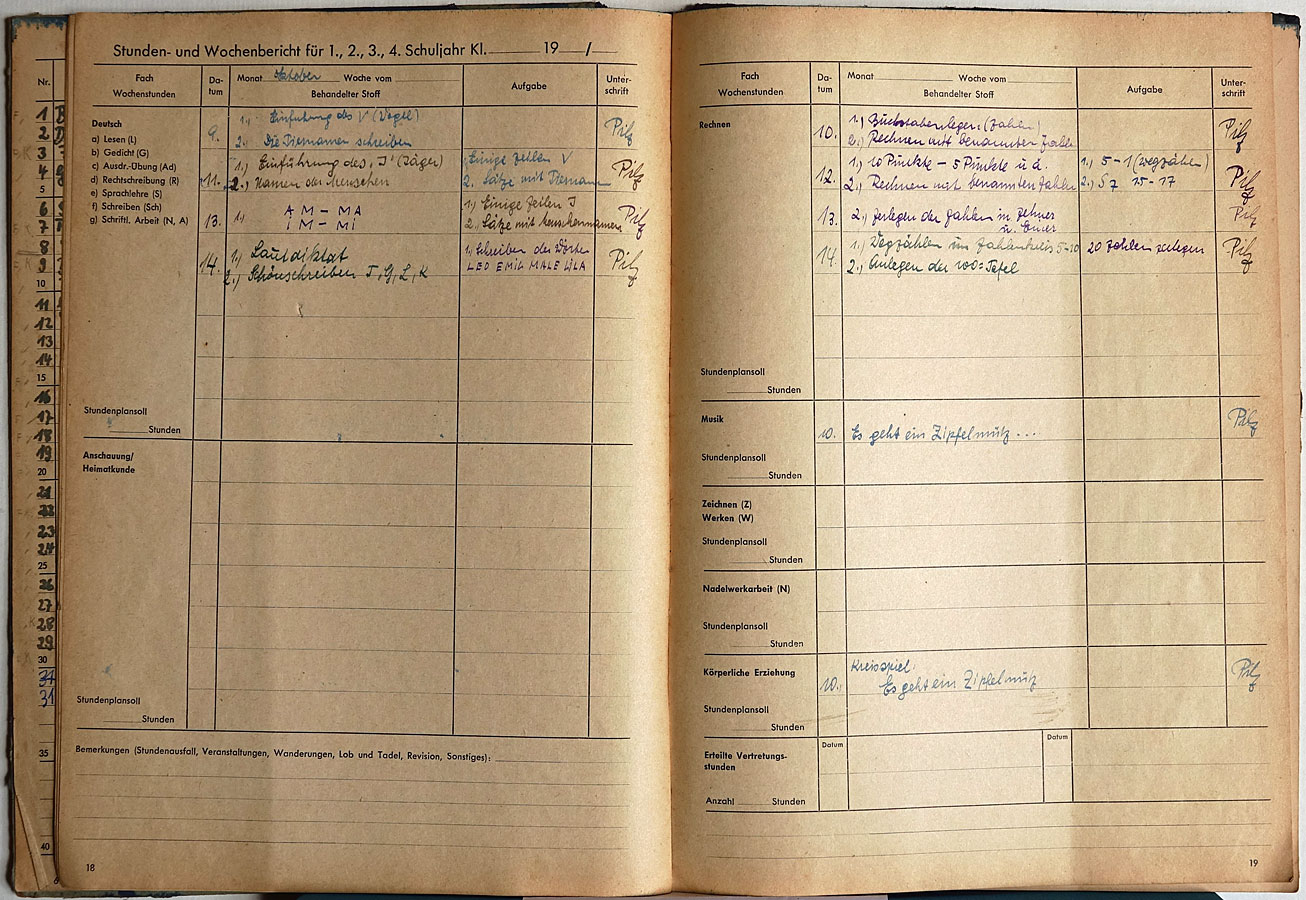 Stunden- und Wochenbericht für 1., 2., 3., 4. Schuljahr Kl. 19 /
Nr.
1
2
3
4
5
6
7
8
9
10
11
12
13
14
15
16
17
18
19
20
21
22
23
24
25
26
27
28
29
30
31
35
40
Fach
Wochenstunden
Da-
tum
Monat Oktober Woche vom
Behandelter Stoff
Aufgabe
Unter-
schrift
Deutsch
a) Lesen (L)
b) Gedicht (G)
c) Ausdr.-Übung (Ad)
d) Rechtschreibung (R)
e) Sprachlehre (S)
f) Schreiben (Sch)
g) Schriftl. Arbeit (N, A)
9. 1., Einführung des V (Vogel) Pilz
2. Die Tiernamen schreiben
11. 1.) Einführung des "J" (Jäger) Einige Zeilen V Pilz
2.) Namen der Menschen 2. Sätze mit Tiernamen
13. 1.) AM – MA 1.) Einige Zeilen J Pilz
IM – MI 2.) Sätze mit Menschennamen
14. 1.) Lautdiktat 1. Schreiben der Wörter Pilz
2.) Schönschreiben J, G, L, K LEO EMIL MALE LILA
Stundenplansoll
Stunden
Anschauung/
Heimatkunde
Stundenplansoll
Stunden
Bemerkungen (Stundenausfall, Veranstaltungen, Wanderungen, Lob und Tadel, Revision, Sonstiges):
18
Fach
Wochenstunden
Da-
tum
Monat Woche vom
Behandelter Stoff
Aufgabe
Unter-
schrift
Rechnen
10. 1.) Buchstabenlegen (Zahlen) Pilz
2.) Rechnen mit benannten Zahlen
12. 1.) 10 Punkte – 5 Punkte u. ä. 1.) 5–1 (wegzählen) Pilz
2.) Rechnen mit benannten Zahlen 2.) S 7 15–17
13. 2.) Zerlegen der Zahlen in Zehner Pilz
u. Einer
14. 1.) Wegzählen im Zahlenkreis 5–10 20 Zahlen zerlegen Pilz
2.) Anlegen der 100=Tafel
Stundenplansoll
Stunden
Musik
10. Es geht ein Zipfelmütz ... Pilz
Stundenplansoll
Stunden
Zeichnen (Z)
Werken (W)
Stundenplansoll
Stunden
Nadelwerkarbeit (N)
Stundenplansoll
Stunden
Körperliche Erziehung
10. Kreisspiel: Pilz
Es geht ein Zipfelmütz
Stundenplansoll
Stunden
Erteilte Vertretungs-
stunden
Datum
Datum
Anzahl Stunden
19